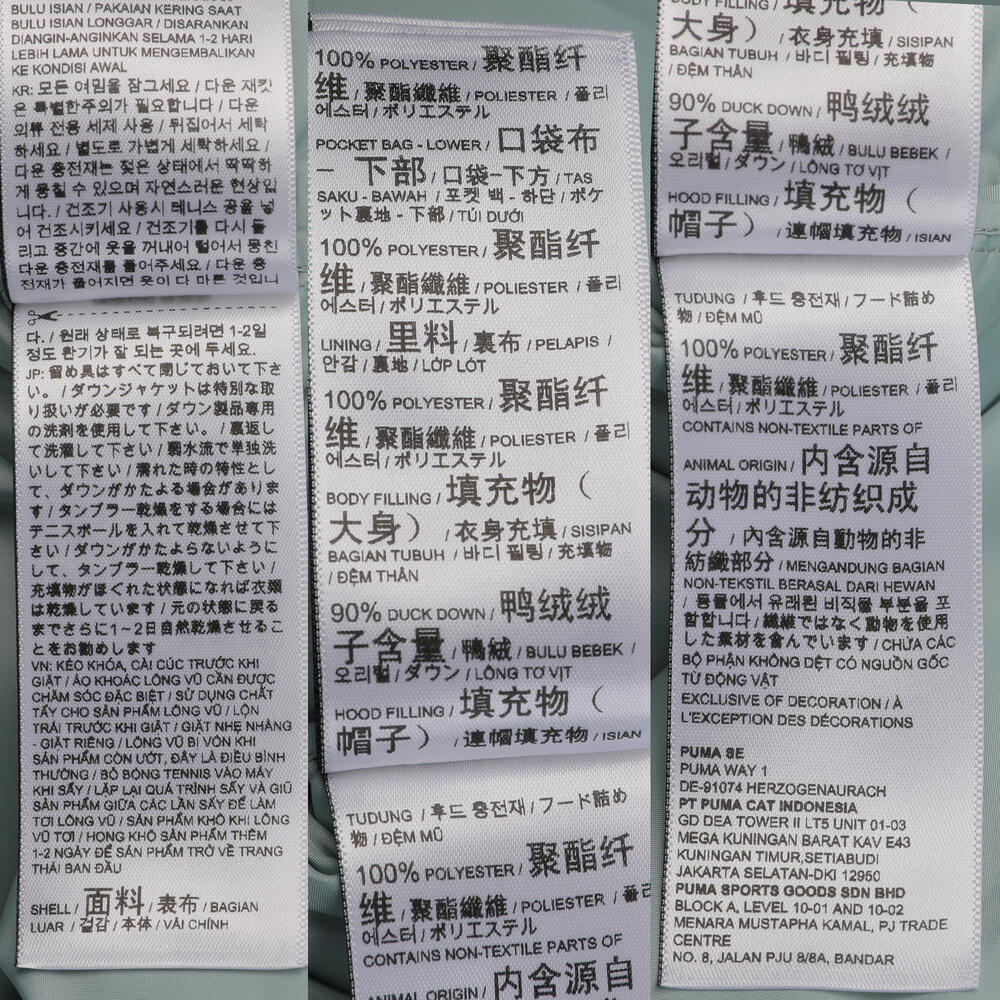 BULU ISIAN / PAKAIAN KERING SAAT
BULU ISIAN LONGGAR / DISARANKAN
DIANGIN-ANGINKAN SELAMA 1-2 HARI
LEBIH LAMA UNTUK MENGEMBALIKAN
KE KONDISI AWAL
KR: 모든 여밈을 잠그세요 / 다운 재킷
은 특별한주의가 필요합니다 / 다운
의류 전용 세제 사용 / 뒤집어서 세탁
하세요 / 별도로 가볍게 세탁하세요 /
다운 충전재는 젖은 상태에서 딱딱하
게 뭉칠 수 있으며 자연스러운 현상입
니다. / 건조기 사용시 테니스 공을 넣
어 건조시키세요 / 건조기를 다시 돌
리고 중간에 옷을 꺼내어 털어서 뭉친
다운 충전재를 풀어주세요 / 다운 충
전재가 풀어지면 옷이 다 마른 것입니
다. / 원래 상태로 복구되려면 1-2일
정도 환기가 잘 되는 곳에 두세요.
JP: 留め具はすべて閉じておいて下さ
い。 / ダウンジャケットは特別な取
り扱いが必要です / ダウン製品専用
の洗剤を使用して下さい。 / 裏返し
て洗濯して下さい / 弱水流で単独洗
いして下さい / 濡れた時の特性とし
て、ダウンがかたよる場合がありま
す / タンブラー乾燥をする場合には
テニスボールを入れて乾燥させて下
さい / ダウンがかたよらないように
して、タンブラー乾燥して下さい /
充填物がほぐれた状態になれば衣類
は乾燥しています / 元の状態に戻る
までさらに1~2日自然乾燥させるこ
とをお勧めします
VN: KÉO KHÓA, CÀI CÚC TRƯỚC KHI
GIẶT / ÁO KHOÁC LÔNG VŨ CẦN ĐƯỢC
CHĂM SÓC ĐẶC BIỆT / SỬ DỤNG CHẤT
TẨY CHO SẢN PHẨM LÔNG VŨ / LỘN
TRÁI TRƯỚC KHI GIẶT / GIẶT NHẸ NHÀNG
- GIẶT RIÊNG / LÔNG VŨ BỊ VÓN KHI
SẢN PHẨM CÒN ƯỚT, ĐÂY LÀ ĐIỀU BÌNH
THƯỜNG / BỎ BÓNG TENNIS VÀO MÁY
KHI SẤY / LẶP LẠI QUÁ TRÌNH SẤY VÀ GIŨ
SẢN PHẨM GIỮA CÁC LẦN SẤY ĐỂ LÀM
TƠI LÔNG VŨ / SẢN PHẨM KHÔ KHI LÔNG
VŨ TƠI / HONG KHÔ SẢN PHẨM THÊM
1-2 NGÀY ĐỂ SẢN PHẨM TRỞ VỀ TRẠNG
THÁI BAN ĐẦU
SHELL / 面料 / 表布 / BAGIAN
LUAR / 겉감 / 本体 / VẢI CHÍNH
100% POLYESTER / 聚酯纤
维 / 聚酯纖維 / POLIESTER / 폴리
에스터 / ポリエステル
POCKET BAG - LOWER / 口袋布
- 下部 / 口袋-下方 / TAS
SAKU - BAWAH / 포켓 백 - 하단 / ポケ
ット裏地 - 下部 / TÚI DƯỚI
100% POLYESTER / 聚酯纤
维 / 聚酯纖維 / POLIESTER / 폴리
에스터 / ポリエステル
LINING / 里料 / 裏布 / PELAPIS /
안감 / 裏地 / LỚP LÓT
100% POLYESTER / 聚酯纤
维 / 聚酯纖維 / POLIESTER / 폴리
에스터 / ポリエステル
BODY FILLING / 填充物（
大身） / 衣身充填 / SISIPAN
BAGIAN TUBUH / 바디 필링 / 充填物
/ ĐỆM THÂN
90% DUCK DOWN / 鸭绒绒
子含量 / 鴨絨 / BULU BEBEK /
오리털 / ダウン / LÔNG TƠ VỊT
HOOD FILLING / 填充物（
帽子） / 連帽填充物 / ISIAN
TUDUNG / 후드 충전재 / フード詰め
物 / ĐỆM MŨ
100% POLYESTER / 聚酯纤
维 / 聚酯纖維 / POLIESTER / 폴리
에스터 / ポリエステル
CONTAINS NON-TEXTILE PARTS OF
ANIMAL ORIGIN / 内含源自
BODY FILLING / 填充物（
大身） / 衣身充填 / SISIPAN
BAGIAN TUBUH / 바디 필링 / 充填物
/ ĐỆM THÂN
90% DUCK DOWN / 鸭绒绒
子含量 / 鴨絨 / BULU BEBEK /
오리털 / ダウン / LÔNG TƠ VỊT
HOOD FILLING / 填充物（
帽子） / 連帽填充物 / ISIAN
TUDUNG / 후드 충전재 / フード詰め
物 / ĐỆM MŨ
100% POLYESTER / 聚酯纤
维 / 聚酯纖維 / POLIESTER / 폴리
에스터 / ポリエステル
CONTAINS NON-TEXTILE PARTS OF
ANIMAL ORIGIN / 内含源自
动物的非纺织成
分 / 內含源自動物的非
紡織部分 / MENGANDUNG BAGIAN
NON-TEKSTIL BERASAL DARI HEWAN
/ 동물에서 유래된 비직물 부분을 포
함합니다 / 繊維ではなく動物を使用
した素材を含んでいます / CHỨA CÁC
BỘ PHẬN KHÔNG DỆT CÓ NGUỒN GỐC
TỪ ĐỘNG VẬT
EXCLUSIVE OF DECORATION / À
L'EXCEPTION DES DÉCORATIONS
PUMA SE
PUMA WAY 1
DE-91074 HERZOGENAURACH
PT PUMA CAT INDONESIA
GD DEA TOWER II LT5 UNIT 01-03
MEGA KUNINGAN BARAT KAV E43
KUNINGAN TIMUR,SETIABUDI
JAKARTA SELATAN-DKI 12950
PUMA SPORTS GOODS SDN BHD
BLOCK A, LEVEL 10-01 AND 10-02
MENARA MUSTAPHA KAMAL, PJ TRADE
CENTRE
NO. 8, JALAN PJU 8/8A, BANDAR